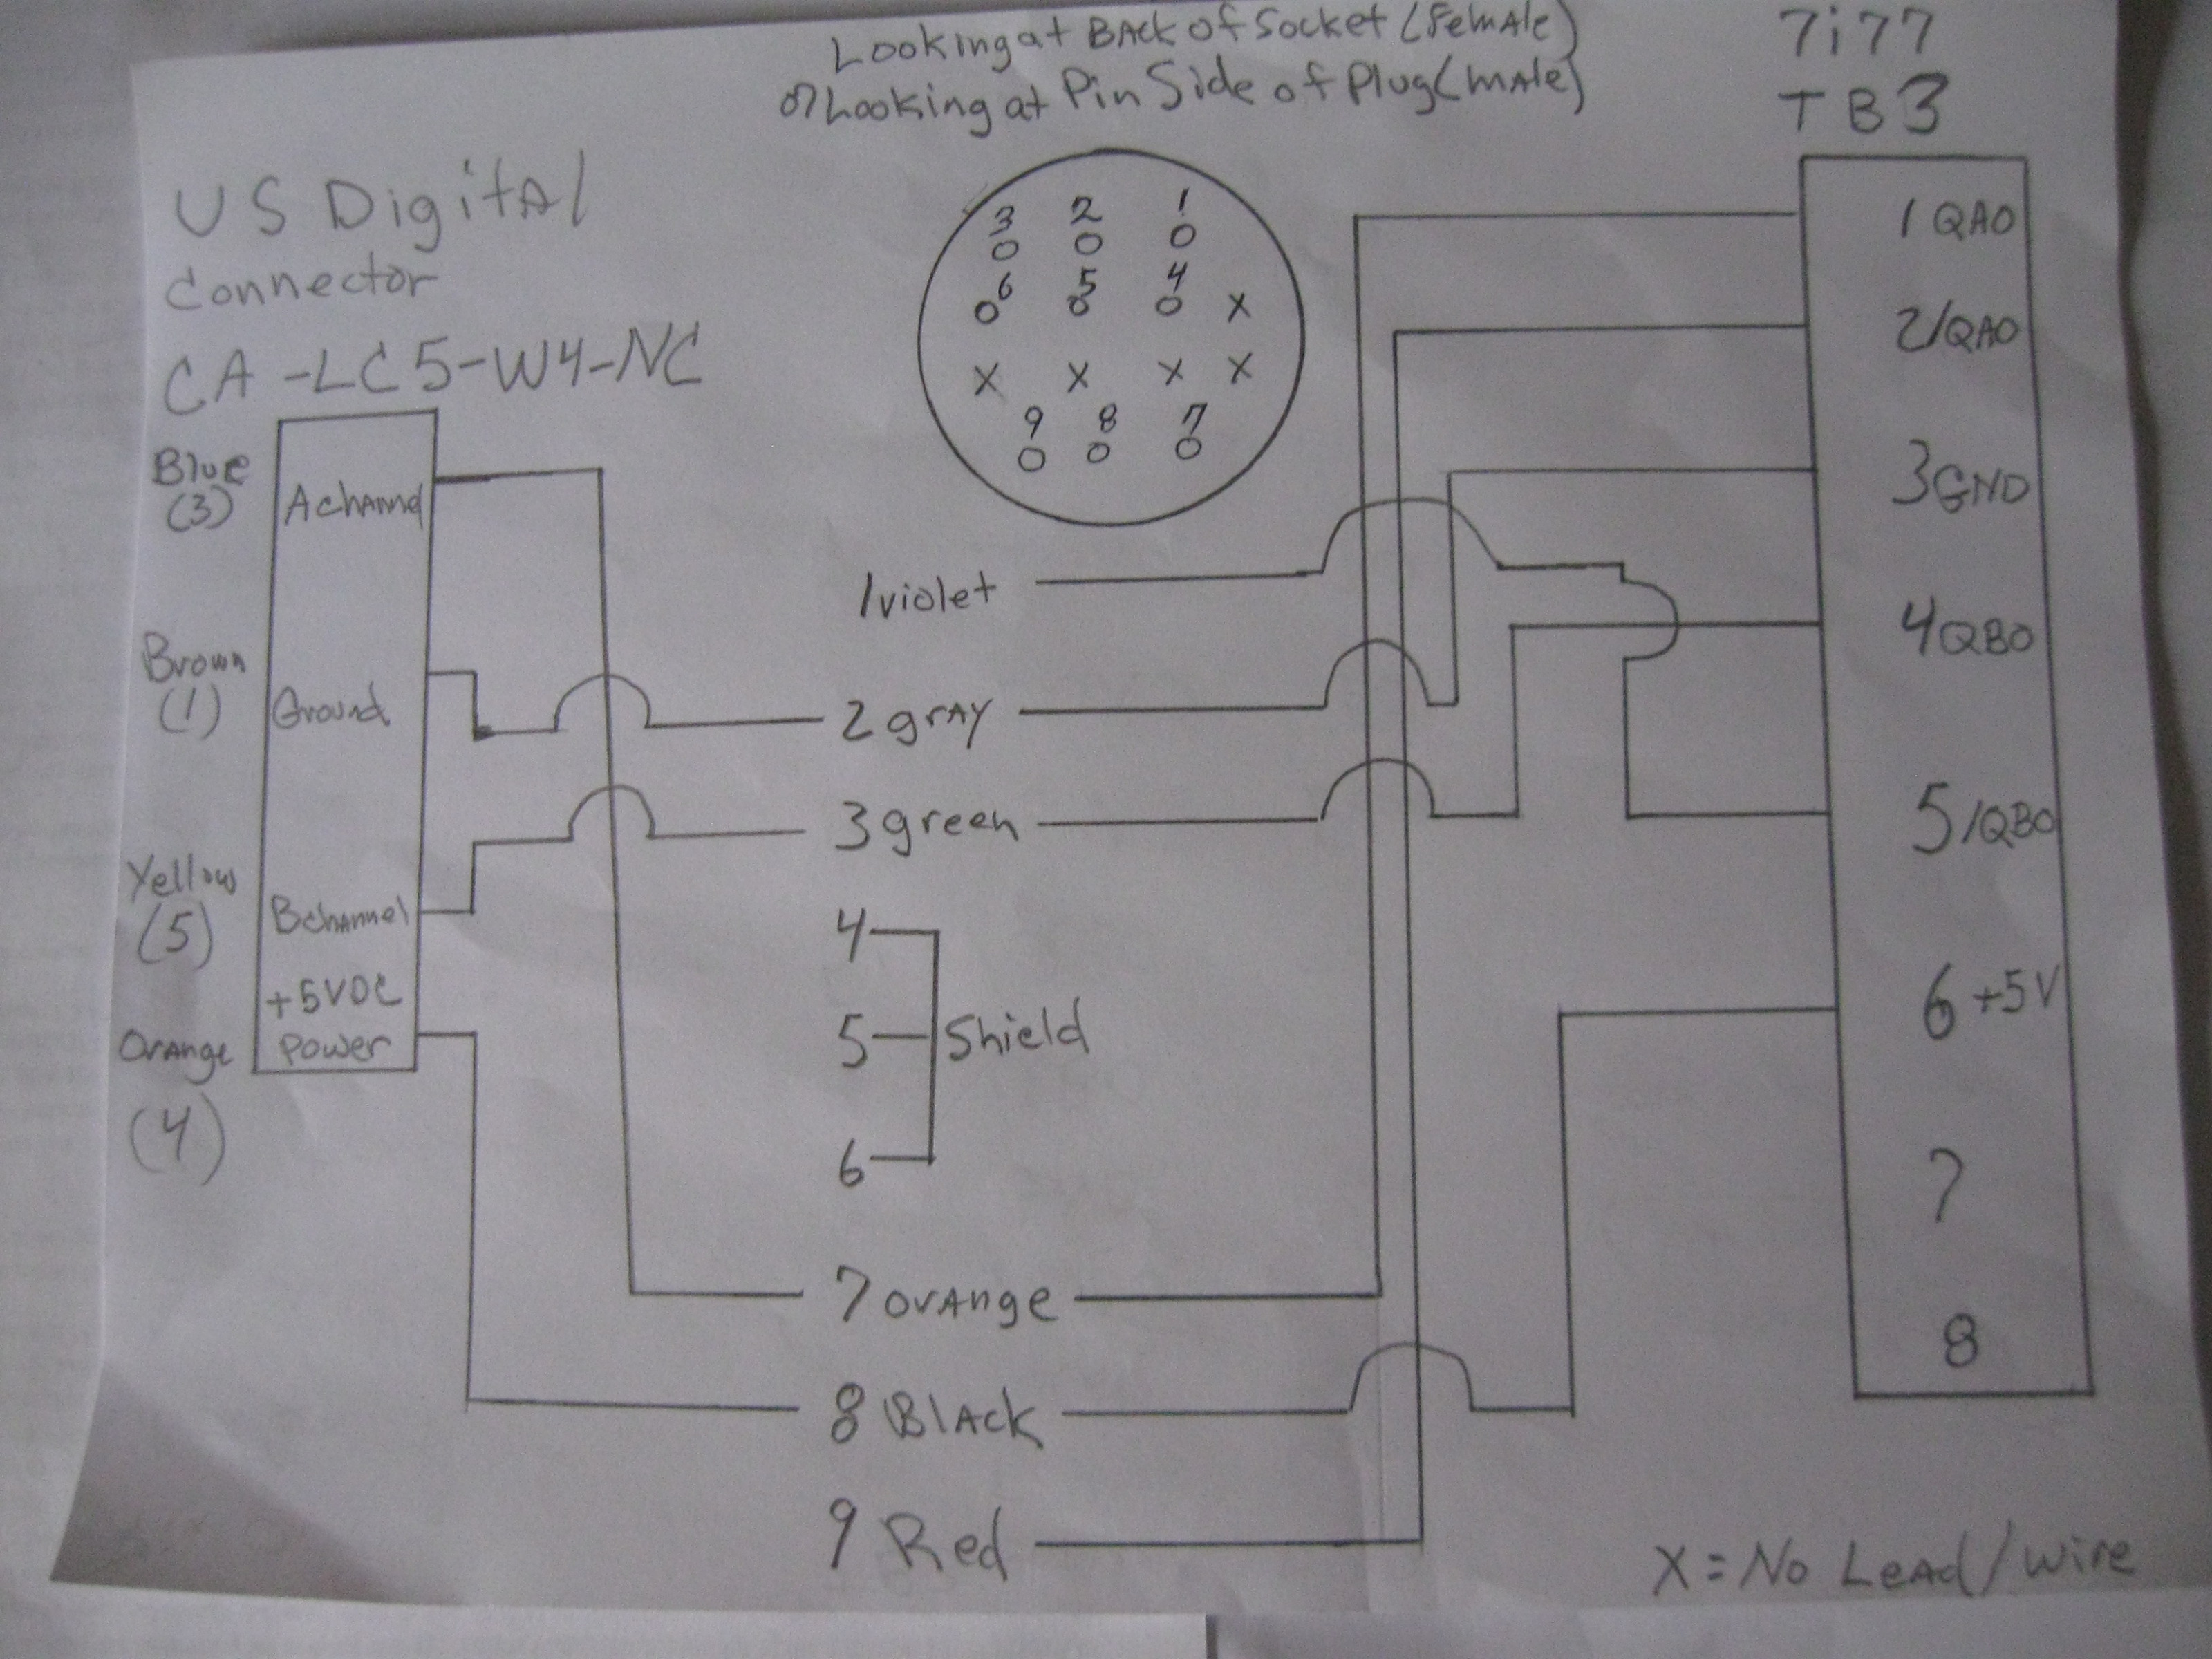 Looking at Back of Socket (Female)
or Looking at Pin Side of Plug (male)
7i77
TB3
US Digital
Connector
CA-LC5-W4-NC
3 2 1
6 5 4 X
X X X X
9 8 7
Blue
(3)
A channel
Brown
(1)
Ground
Yellow
(5)
B channel
+5VDC
Power
Orange
(4)
1 violet
2 gray
3 green
4
5 Shield
6
7 Orange
8 Black
9 Red
1 QA0
2 /QA0
3 GND
4 QB0
5 /QB0
6 +5V
7
8
X = No Lead/wire